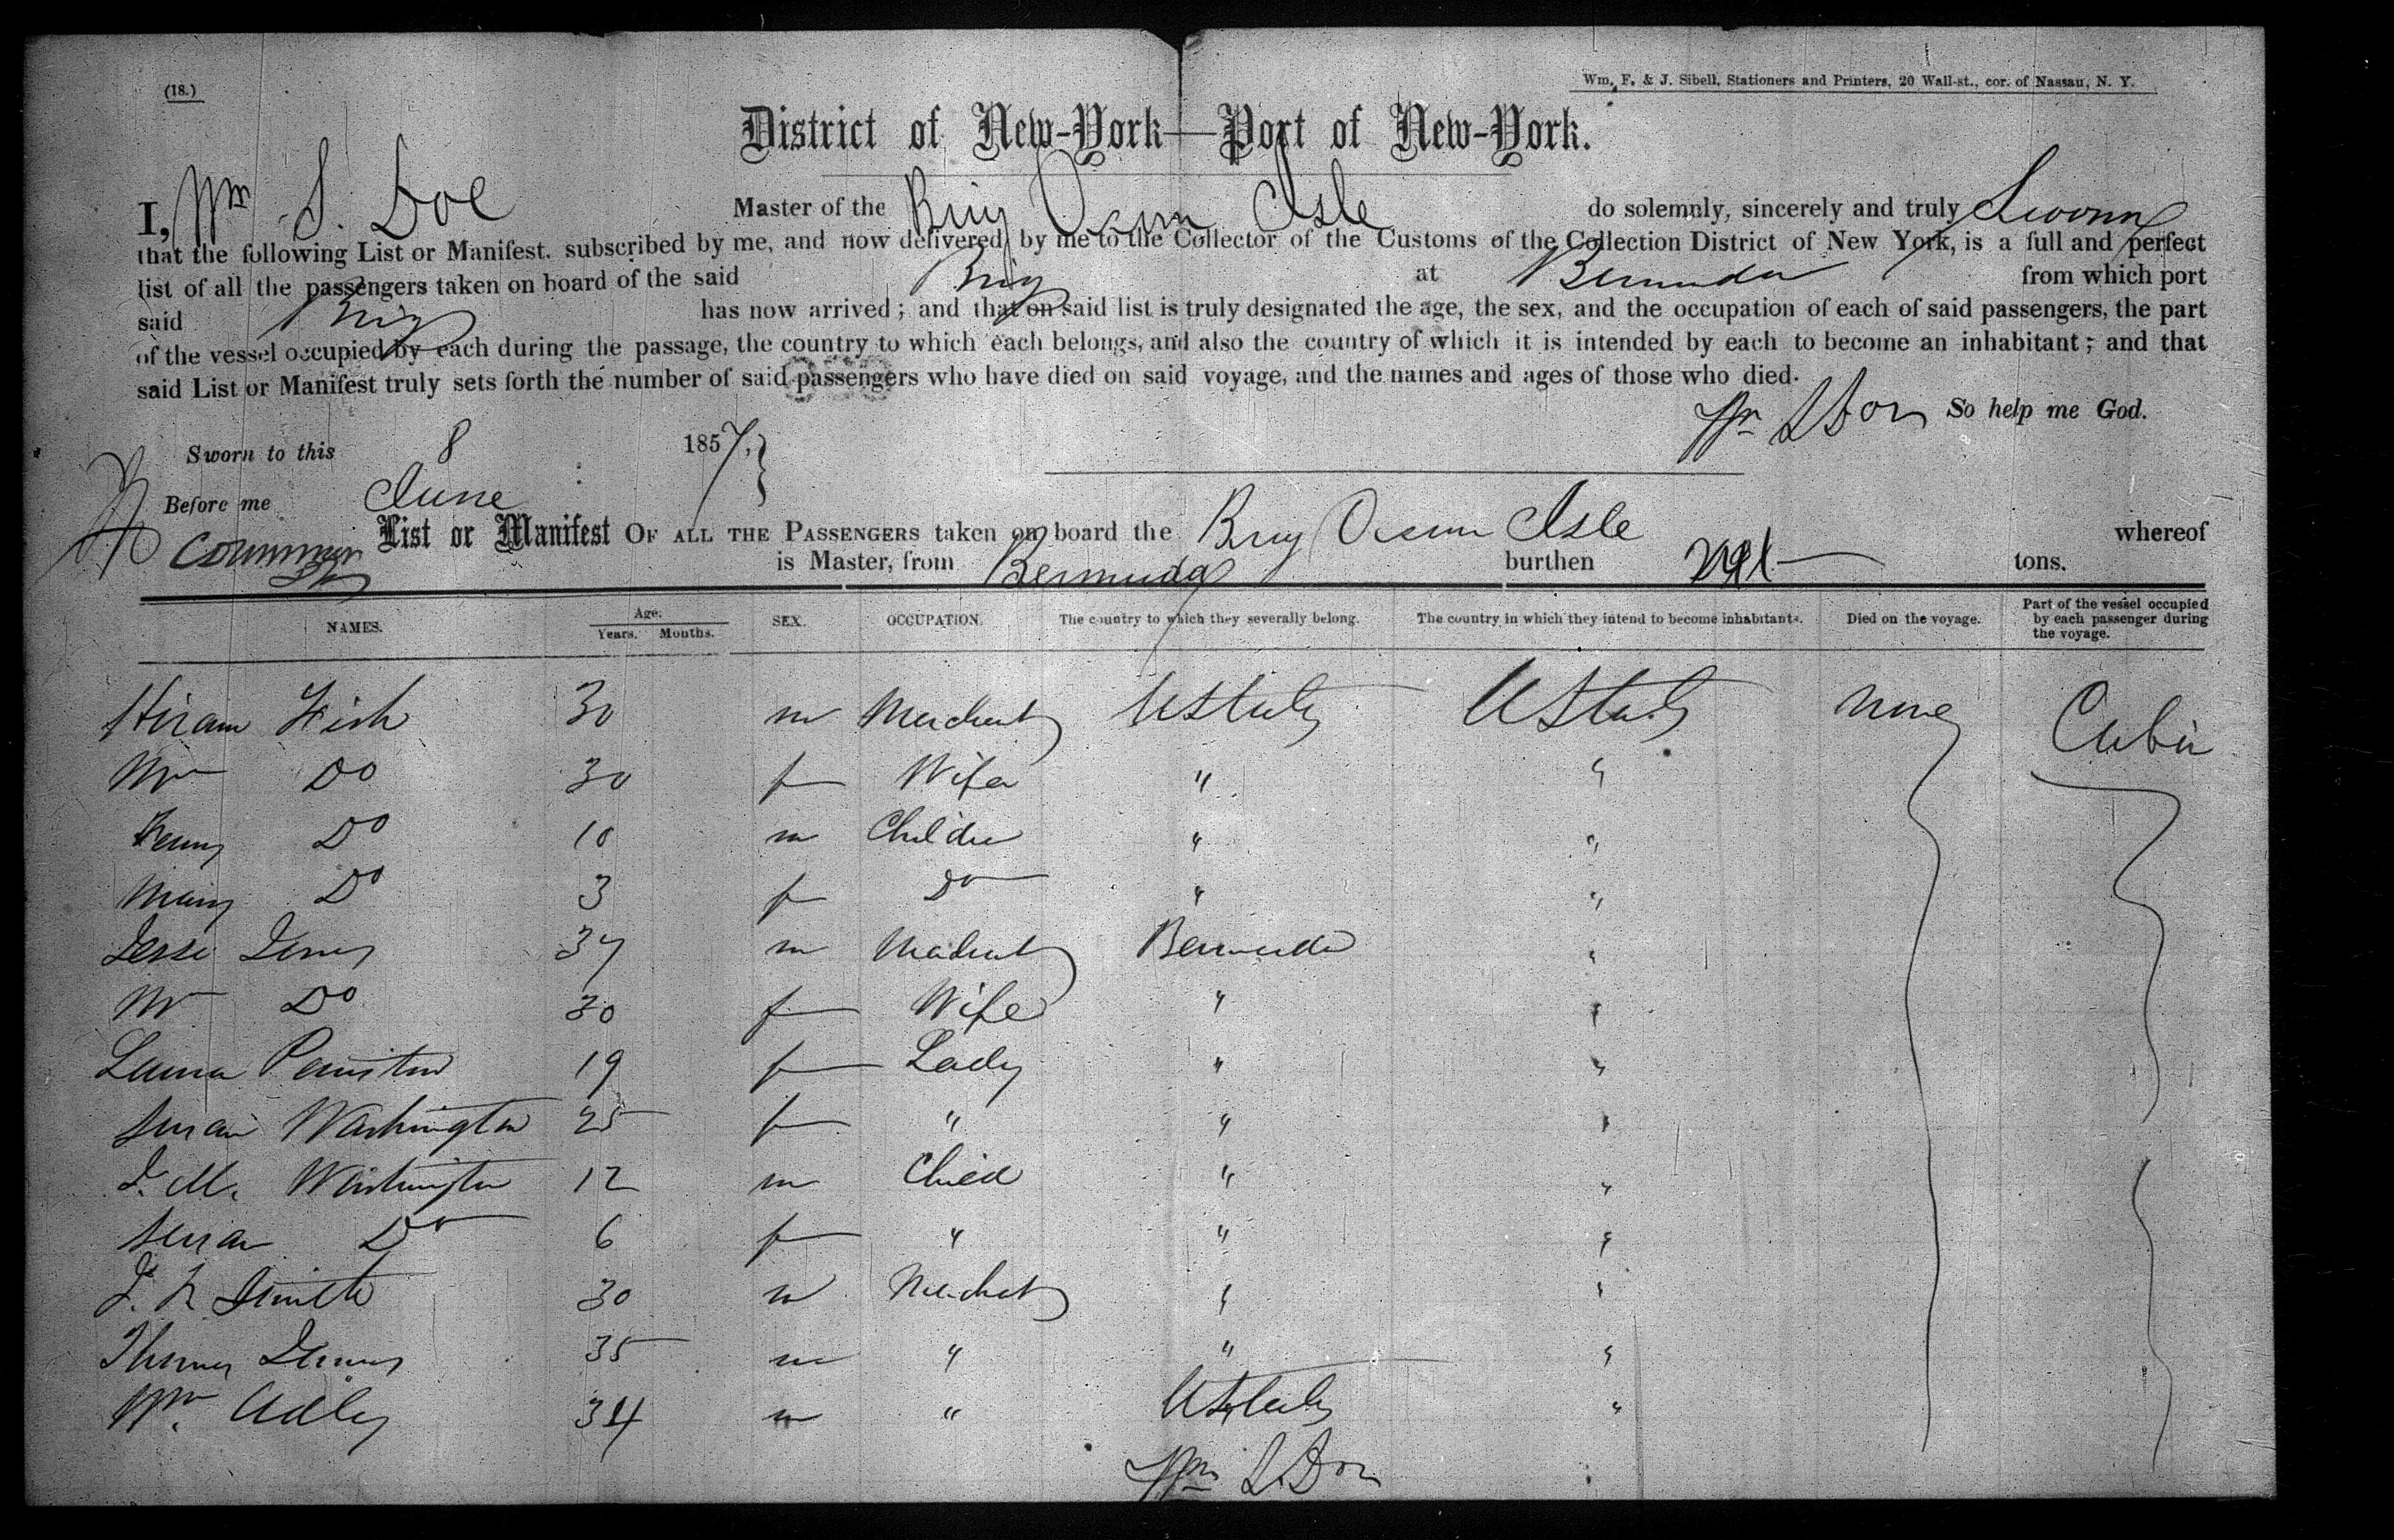 (18.)
Wm. F. & J. Sibell, Stationers and Printers, 20 Wall-st., cor. of Nassau, N. Y.
District of New-York—Port of New-York.
I, Wm S. Doe Master of the Brig Ocean Isle do solemnly, sincerely and truly Swear
that the following List or Manifest, subscribed by me, and now delivered by me to the Collector of the Customs of the Collection District of New York, is a full and perfect
list of all the passengers taken on board of the said Brig at Bermuda from which port
said Brig has now arrived; and that on said list is truly designated the age, the sex, and the occupation of each of said passengers, the part
of the vessel occupied by each during the passage, the country to which each belongs, and also the country of which it is intended by each to become an inhabitant; and that
said List or Manifest truly sets forth the number of said passengers who have died on said voyage, and the names and ages of those who died.
Wm S Doe So help me God.
Sworn to this 8 1857,
Before me June
List or Manifest OF ALL THE PASSENGERS taken on board the Brig Ocean Isle whereof
is Master, from Bermuda burthen tons.
NAMES. Age. Years. Months. SEX. OCCUPATION. The country to which they severally belong. The country in which they intend to become inhabitants. Died on the voyage. Part of the vessel occupied by each passenger during the voyage.
Hiram Fish 30 m Merchant UStates UStates None Cabin
Mrs Do 30 f Wife " "
Do 10 m Children " "
Mary Do 3 f Do " "
Jesse Jones 37 m Merchant Bermuda "
Do 30 f Wife " "
Laura Peniston 19 f Lady " "
Susan Washington 25 f " " "
J. M. Washington 12 m Child " "
Susan Do 6 f " " "
J. N Smith 30 m Merchant " "
Thomas 35 m " " "
Wm. Adley 34 m " UStates "
Wm S. Doe